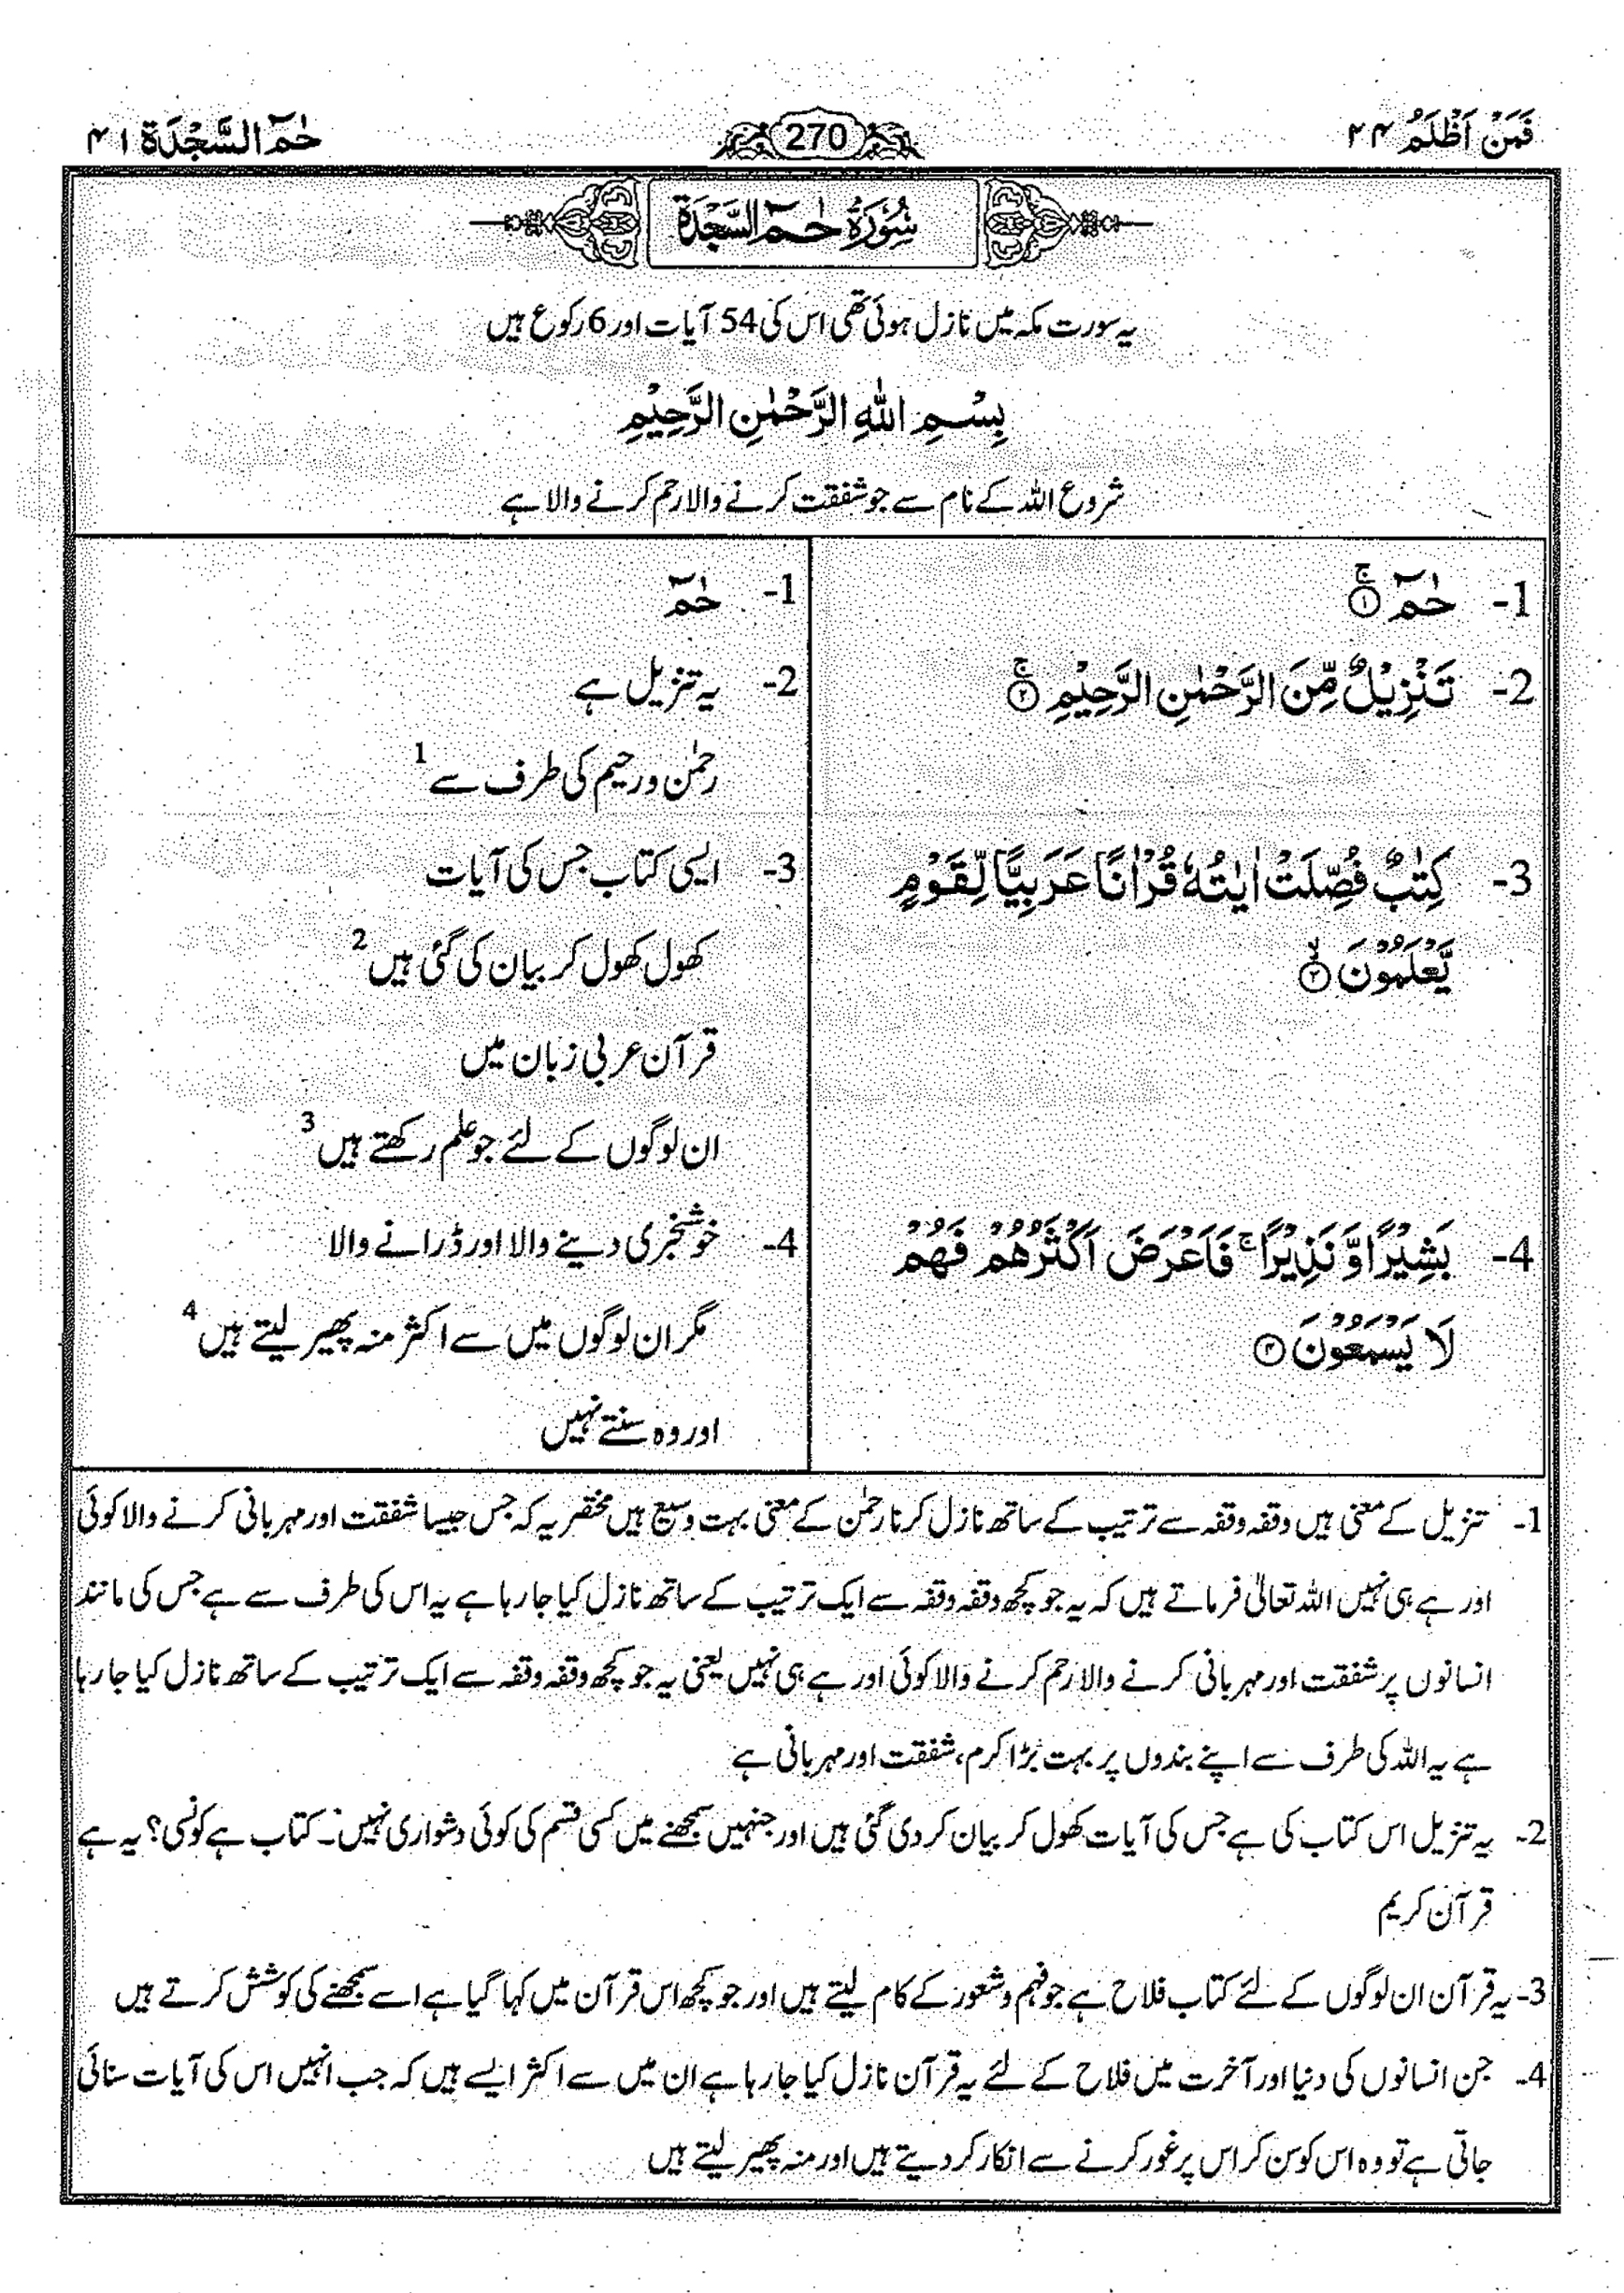 فَمَنْ اَظْلَمُ ۲۴
270
حٰمٓ السَّجْدَة ۴۱
سُوْرَةُ حٰمٓ السَّجْدَة
یہ سورت مکہ میں نازل ہوئی تھی اس کی 54 آیات اور 6 رکوع ہیں
بِسْمِ اللّٰهِ الرَّحْمٰنِ الرَّحِيْمِ
شروع اللہ کے نام سے جو شفقت کرنے والا رحم کرنے والا ہے
1- حٰمٓ ۚ﴿۱﴾
2- تَنْزِيْلٌ مِّنَ الرَّحْمٰنِ الرَّحِيْمِ ۚ﴿۲﴾
3- كِتٰبٌ فُصِّلَتْ اٰيٰتُهٗ قُرْاٰنًا عَرَبِيًّا لِّقَوْمٍ
يَّعْلَمُوْنَ ۙ﴿۳﴾
4- بَشِيْرًا وَّ نَذِيْرًا ۚ فَاَعْرَضَ اَكْثَرُهُمْ فَهُمْ
لَا يَسْمَعُوْنَ ﴿۴﴾
1- حٰمٓ
2- یہ تنزیل ہے
رحمٰن ورحیم کی طرف سے 1
3- ایسی کتاب جس کی آیات
کھول کھول کر بیان کی گئی ہیں 2
قرآن عربی زبان میں
ان لوگوں کے لئے جو علم رکھتے ہیں 3
4- خوشخبری دینے والا اور ڈرانے والا
مگر ان لوگوں میں سے اکثر منہ پھیر لیتے ہیں 4
اور وہ سنتے نہیں
1- تنزیل کے معنی ہیں وقفہ وقفہ سے ترتیب کے ساتھ نازل کرنا رحمٰن کے معنی بہت وسیع ہیں مختصر یہ کہ جس جیسا شفقت اور مہربانی کرنے والا کوئی
اور ہے ہی نہیں اللہ تعالیٰ فرماتے ہیں کہ یہ جو کچھ وقفہ وقفہ سے ایک ترتیب کے ساتھ نازل کیا جا رہا ہے یہ اس کی طرف سے ہے جس کی مانند
انسانوں پر شفقت اور مہربانی کرنے والا رحم کرنے والا کوئی اور ہے ہی نہیں یعنی یہ جو کچھ وقفہ وقفہ سے ایک ترتیب کے ساتھ نازل کیا جا رہا
ہے یہ اللہ کی طرف سے اپنے بندوں پر بہت بڑا کرم، شفقت اور مہربانی ہے
2- یہ تنزیل اس کتاب کی ہے جس کی آیات کھول کر بیان کر دی گئی ہیں اور جنہیں سمجھنے میں کسی قسم کی کوئی دشواری نہیں۔ کتاب ہے کونسی؟ یہ ہے
قرآن کریم
3- یہ قرآن ان لوگوں کے لئے کتاب فلاح ہے جو فہم و شعور کے کام لیتے ہیں اور جو کچھ اس قرآن میں کہا گیا ہے اسے سمجھنے کی کوشش کرتے ہیں
4- جن انسانوں کی دنیا اور آخرت میں فلاح کے لئے یہ قرآن نازل کیا جا رہا ہے ان میں سے اکثر ایسے ہیں کہ جب انہیں اس کی آیات سنائی
جاتی ہے تو وہ اس کو سن کر اس پر غور کرنے سے انکار کر دیتے ہیں اور منہ پھیر لیتے ہیں